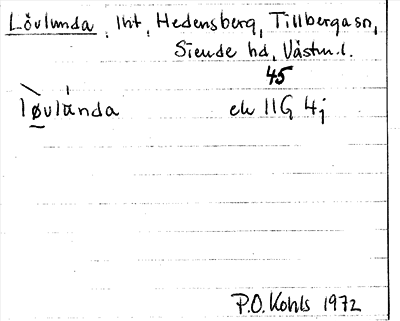 Lövlunda, lht, Hedensberg, Tillberga sn,
Siende hd, Västm.l.
45
løvlùnda ek 11G 4j
P.O. Kohls 1972